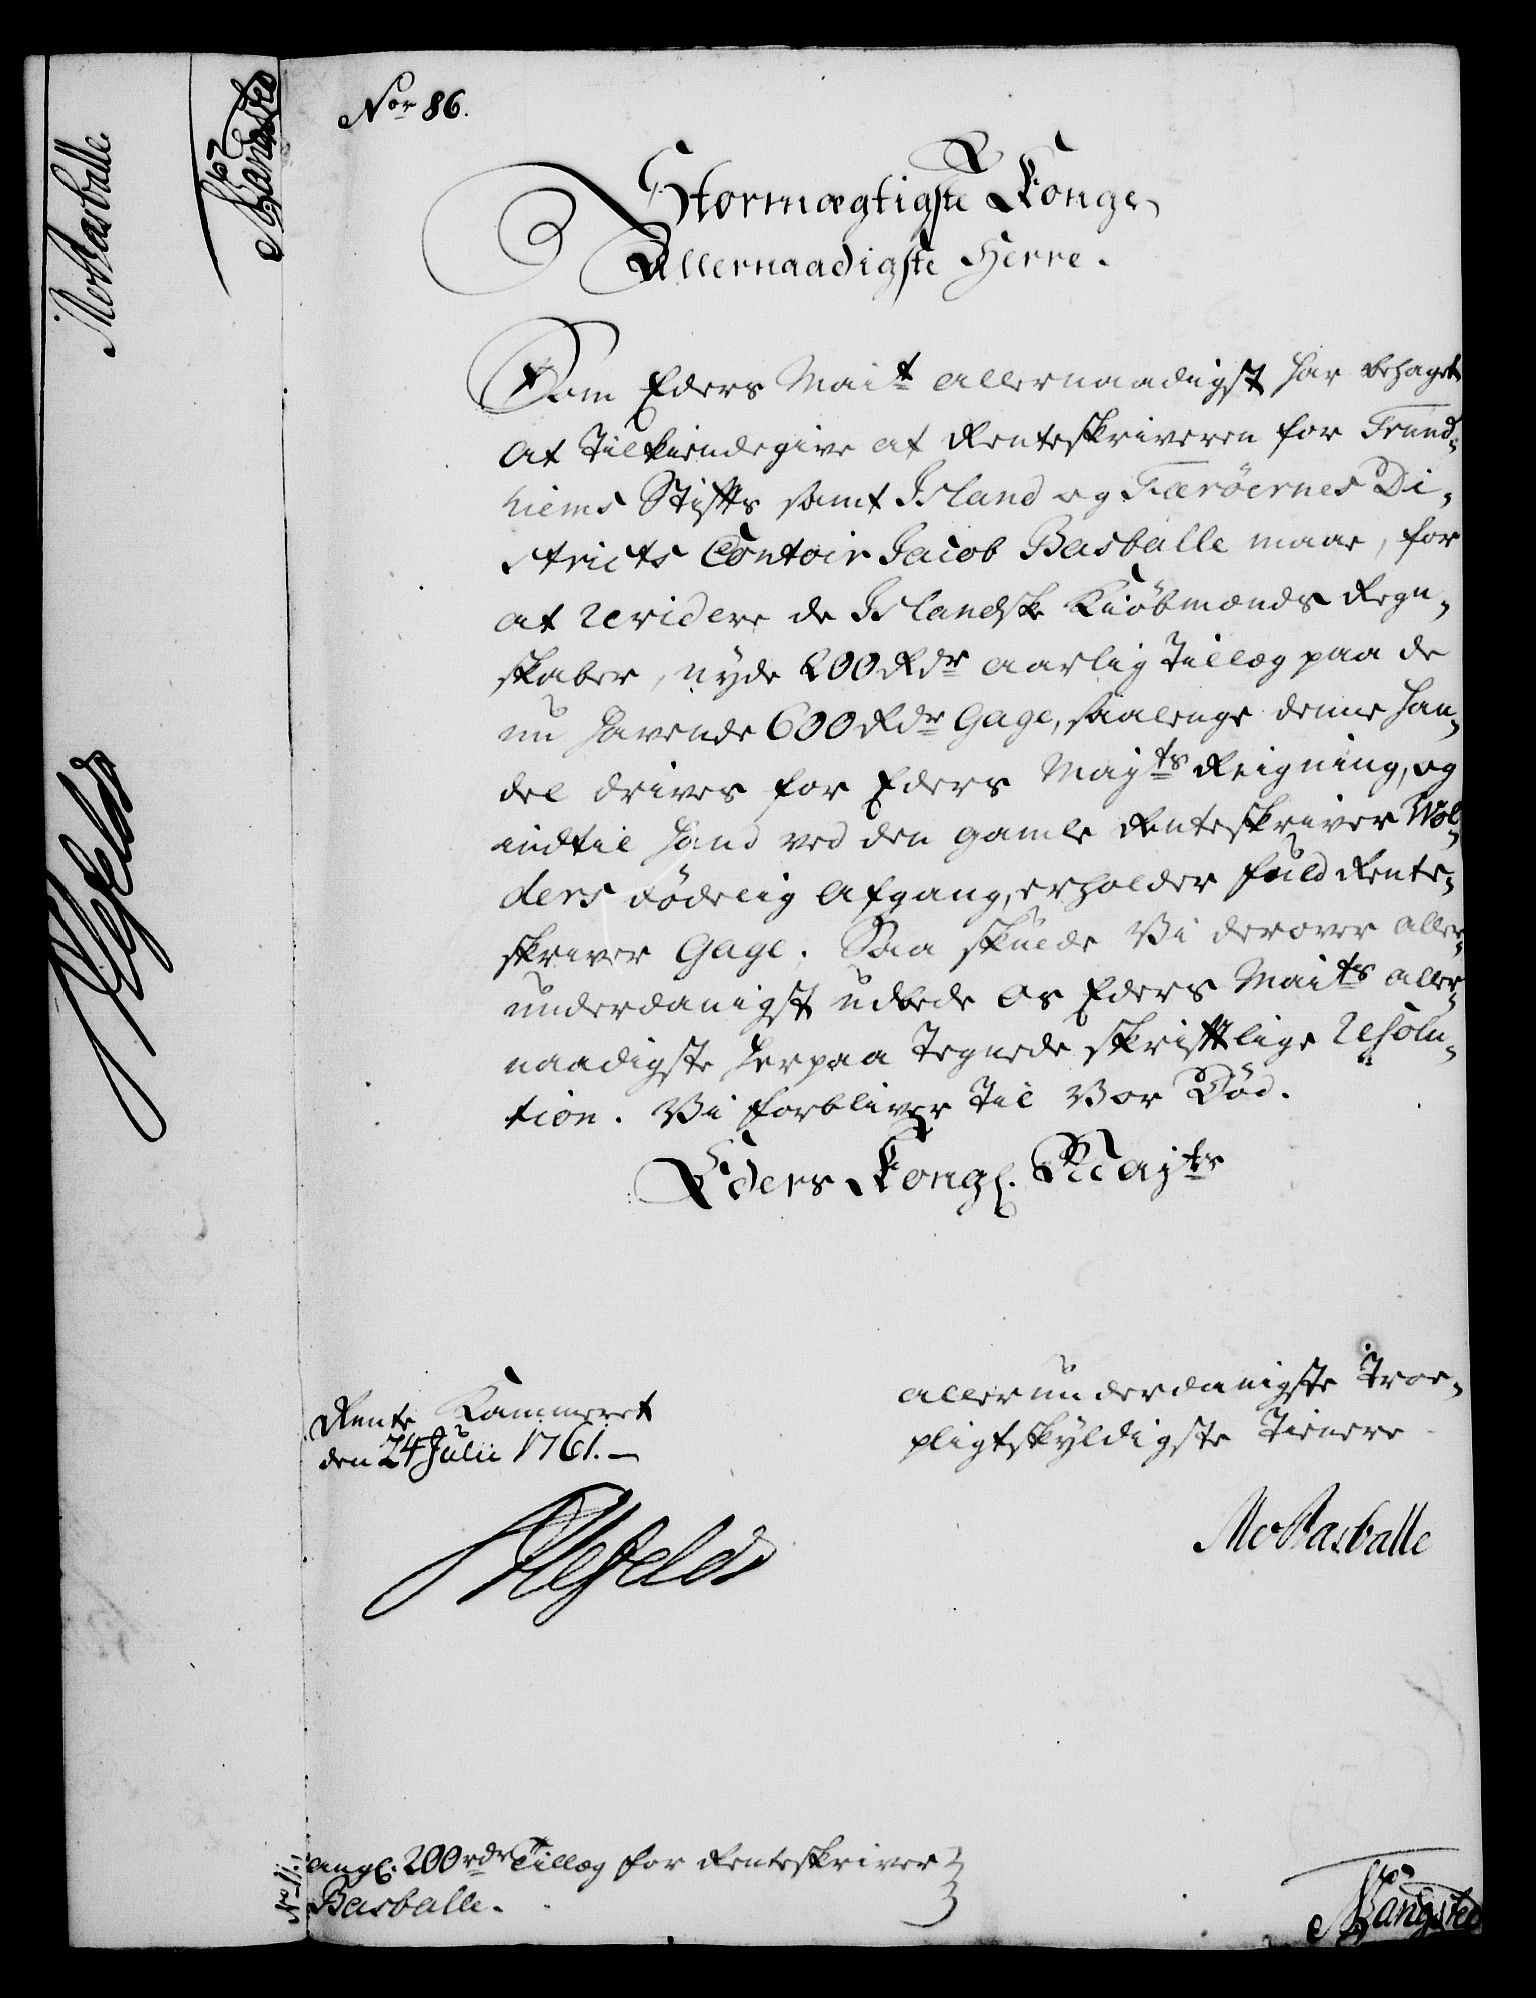 Nor 86.
Stormægtigste Konge,
Allernaadigste Herre.
Som Eders Mait allernaadigst har behaget
at tilkiendegive at Renteskriveren for Trund-
hiems Stiffts samt Island og Færöernes Di-
stricts Contoir Jacob Basballe maae, for
at revidere de Islandske Kiöbmænds Regn-
skaber, nyde 200 Rdr aarlig Tillæg paa de
nu havende 600 Rdr Gage, saalenge denne Han-
del drives for Eders Majts Reigning, og
indtil hand ved den gamle Renteskriver Wöl-
ders dödelig Afgang, erholder fuld Rente-
skriver Gage. Saa skulde Vi derover aller-
underdanigst udbede os Eders Maits aller-
naadigste herpaa Tegnede skrifftlige Resolu-
tion. Vi forbliver til Vor Död.
Eders Kongl. Majts
Rente Kammeret
den 24 Julii 1761.
allerunderdanigste Troe-
pligtskyldigste Tienere
Basballe
angl. 200 rdr Tillæg for Renteskriver
Basballe.
No 11.
Bangsted
Basballe
Bangsted